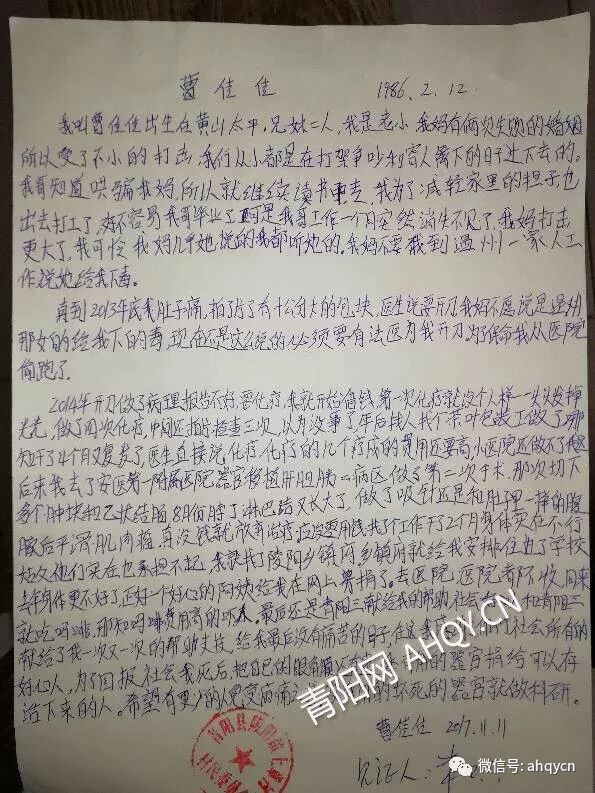 曹佳佳 1986.2.12.
我叫曹佳佳出生在黄山太平,兄妹二人,我是老小我妈有俩次失败的婚姻
所以受了不小的打击,我们从小都是在打架争吵和寄人篱下的日子过下去的。
我哥知道哄骗我妈,所以就继续读书中专,我为了减轻家里的担子,也
出去打工了,好不容易我哥毕业了,可是我哥工作一个月突然消失不见了,我妈打击
更大了,我可怜我妈几乎她说的我都听她的。我妈不要我到温州一家人工
作说她给我下毒。
直到2013年底我肚子痛,拍了片了有十公分大的包块,医生说要开刀我妈不愿说是温州
那女的给我下的毒,现在还是这么说的必须要有法医为我开刀,为了保命我从医院
偷跑了.
2014年开刀做了病理报告不好,要化疗,我就开始借钱,第一次化疗就没个人样一头头发掉
光光,做了四次化疗,中间还拍片检查三次,以为没事了年后找人找个茶叶包装工做了,哪
知干了4个月又复发了,医生直接说,化疗化疗的几个疗成的费用还要高,小医院还做不了
后来我去了安医第一附属医院器官移植肝胆胰 病区做了第二次手术.那次切下
多个肿块和乙状结肠,8月份脖子淋巴结又长大了,做了吸针还是和肚里一样的腹
膜后平滑肌肉瘤,再没钱就放弃治疗,应没要用钱,找了工作干了2个月身体实在不行
姑父他们实在也承担不起,我就找了陵阳乡镇府,乡镇府就给我安排住也了学校
去年身体更不好了,正好一个好心的阿姨给我在网上募捐了。去医院,医院都不收,回来
就吃吗啡,那和吗啡费用高的吓人,最后还是青阳三献给我的帮助,社会 和青阳三
献给了我一次又一次的帮助支枝,给我最后没有痛苦的日子,在这我 们社会所有的
好心人,为了回报社会我死后,把自己的眼角膜 的器官捐给可以存
活下来的人。希望有要 的坏死的器官就做科研。
曹佳佳 2017.11.11
见证人:
青阳县陵阳镇
村民委员
青阳网 AHQY.CN
微信号: ahqycn